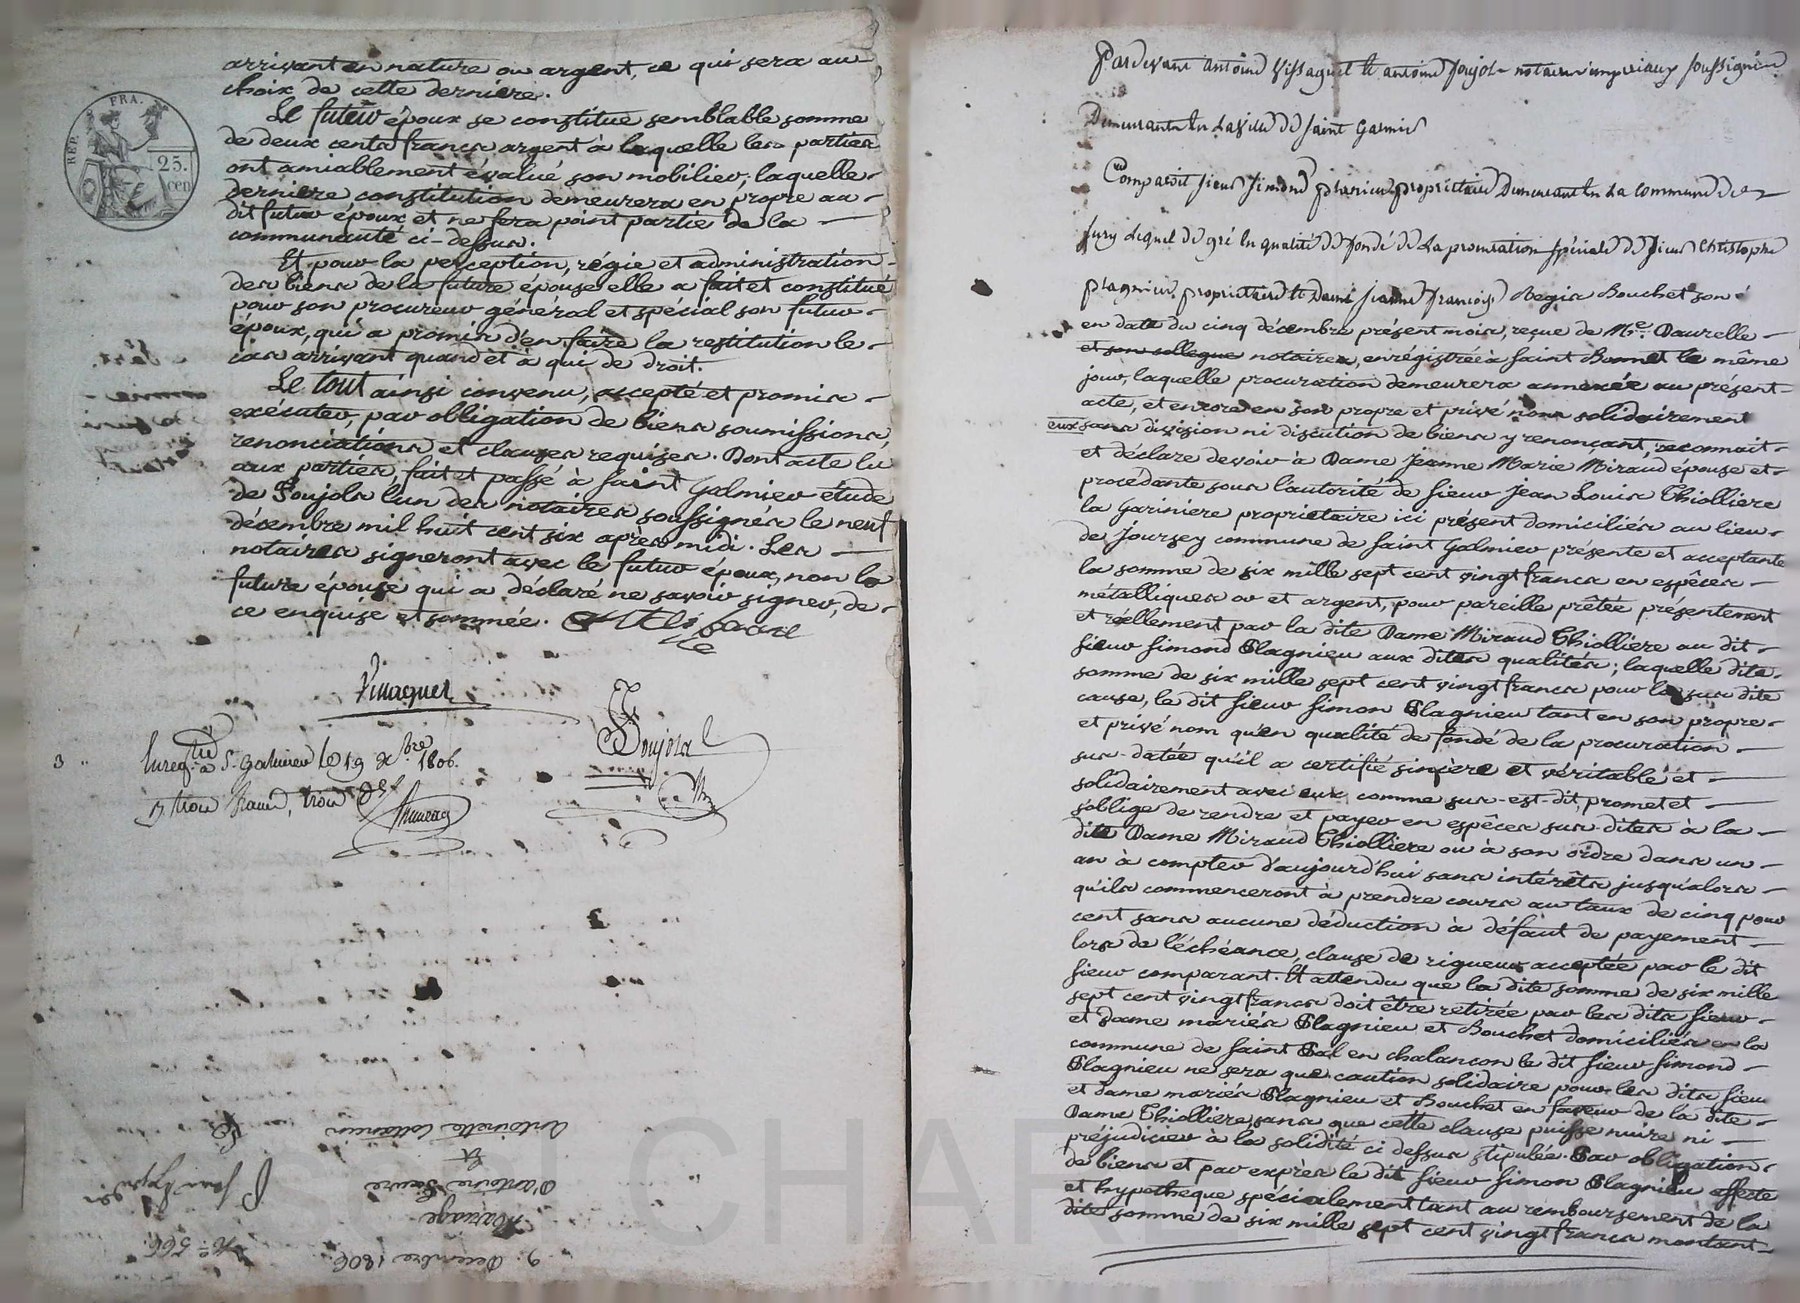 arrivant en nature ou argent, ce qui sera au
choix de cette derniere.
Le futur époux se constitue semblable somme
de deux cents francs argent à laquelle les parties
ont amiablement évalué son mobilier; laquelle
derniere constitution demeurera en propre au
dit futur époux et ne fera point partie de la
communauté ci-dessus.
Et pour la perception, régie et administration
des biens de la future épouse elle a fait et constitué
pour son procureur général et spécial son futur
époux, qui a promis d'en faire la restitution le
cas arrivant quand et à qui de droit.
Le tout ainsi convenu, accepté et promis
exécuter, par obligation de biens soumissions,
renonciations et clauses requises. Dont acte lu
aux parties, fait et passé à Saint Galmier étude
de Poujols l'un des notaires soussignés le neuf
décembre mil huit cent six apres midi. Les
notaires signeront avec le futur époux, non la
future épouse qui a déclaré ne savoir signer, de
ce enquise et sommée.
Vissaguet
Poujols
3
Enregtré à St. Galmier le 19 Xbre 1806.
trois francs, trois
REP. FRA.
25.
cen
9. Decembre 1806
No. 566.
Mariage
d'antoine
et
antoinette
Pardevant antoine Vissaguet et antoine Poujols notaires imperiaux soussignés
Demeurants en la Ville de Saint Galmier
Comparoit sieur simond plagnieu proprietaire Demeurant en la commune de
Jury lequel de gré en qualité de fondé de la procuration spéciale de sieur Christophe
plagnieu, proprietaire et dame jeanne françoise Regis Bouchet son é
en date du cinq décembre présent mois, reçue de Me. Daurelle
et son collegue notaires, enrégistrée à Saint Bonnet le même
jour, laquelle procuration demeurera annexée au présent
acte, et encore en son propre et privé nom solidairement
eux sans division ni discution de biens y renonçant, reconnait
et déclare devoir à Dame Jeanne Marie Miraud épouse et
procédante sous l'autorité de sieur Jean Louis Thiolliere
la Gariniere proprietaire ici présent domiciliés au lieu
de Joursey commune de Saint Galmier présente et acceptante
la somme de six mille sept cent vingt francs en espêces
métalliques or et argent, pour pareille prêtée présentement
et réellement par la dite Dame Miraud Thiolliere au dit
sieur Simond Plagnieu aux dites qualités; laquelle dite
somme de six mille sept cent vingt francs pour la sus dite
cause, le dit sieur Simon Plagnieu tant en son propre
et privé nom qu'en qualité de fondé de la procuration
sus-datée qu'il a certifié sincère et véritable et
solidairement avec eux comme sus-est-dit, promet et
s'oblige de rendre et payer en espêces sus-dites à la
dite Dame Miraud Thiolliere ou à son ordre dans un
an à compter d'aujourd'hui sans intérêts jusqu'alors
qu'ils commenceront à prendre cours au taux de cinq pour
cent sans aucune déduction à défaut de payement
lors de l'échéance, clause de rigueur acceptée par le dit
sieur comparant. Et attendu que la dite somme de six mille
sept cent vingt francs doit être retirée par les dits sieur
et dame mariés Plagnieu et Bouchet domiciliés en la
commune de Saint Pal en chalancon le dit sieur Simond
Plagnieu ne sera que caution solidaire pour les dits sieur
et dame mariés Plagnieu et Bouchet en faveur de la dite
Dame Thiolliere sans que cette clause puisse nuire ni
préjudicier à la solidité ci dessus stipulée. Par obligation
de biens et par exprès le dit sieur Simon Plagnieu affecte
et hypotheque spécialement tant au remboursement de la
dite somme de six mille sept cent vingt francs montant
CHARE